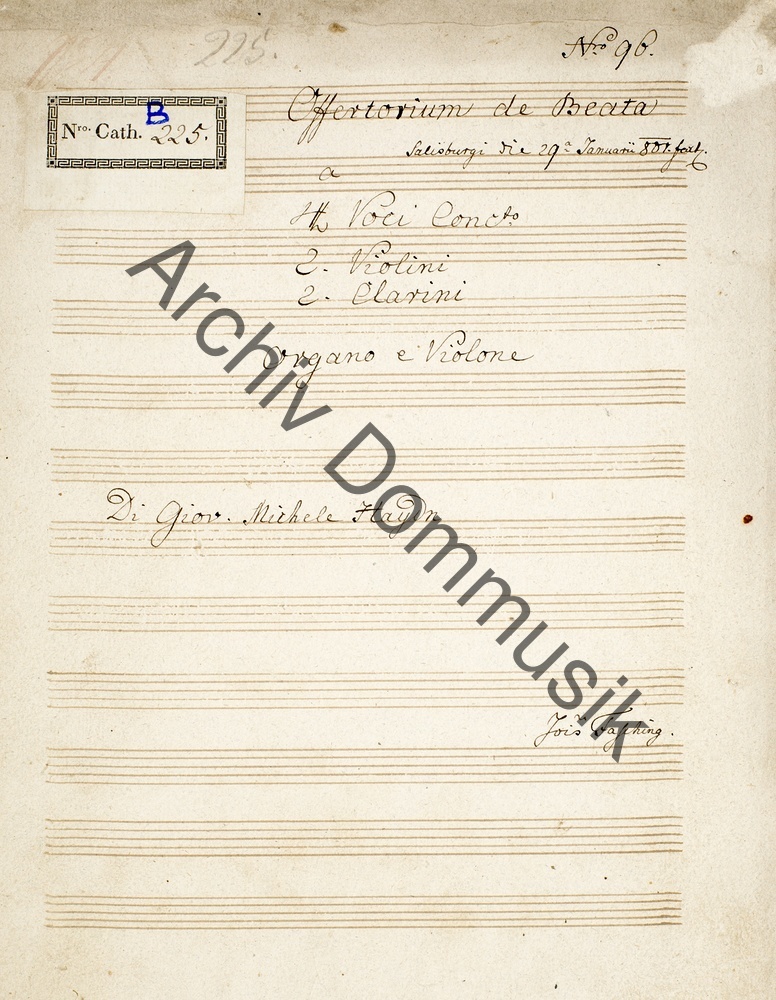 225.
Nro 96.
B
Nro. Cath. 225.
Offertorium de Beata
Salisburgi die 29a Januarii 801.
a
4 Voci Concto
2. Violini
2. Clarini
Organo e Violone
Di Giov. Michele Haydn
Archiv Dommusik
Jois Fasching.